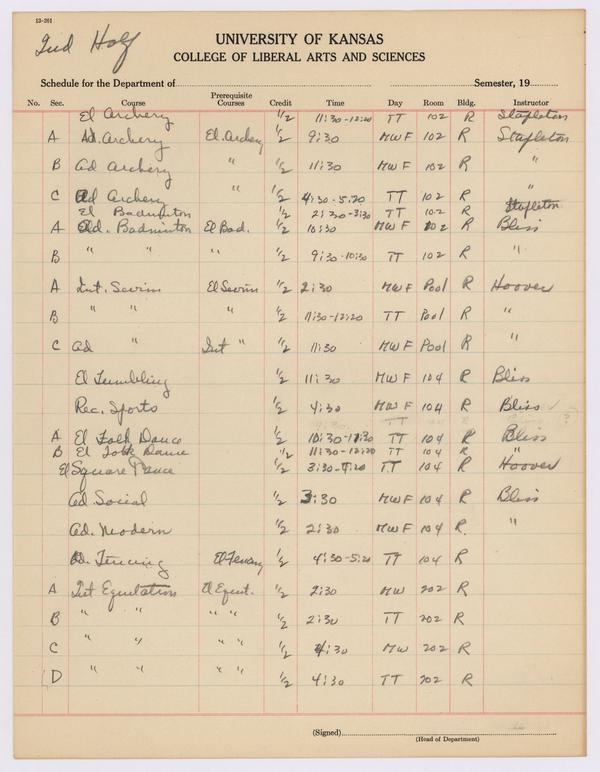 13-261
2nd Half
UNIVERSITY OF KANSAS
COLLEGE OF LIBERAL ARTS AND SCIENCES
Schedule for the Department of Semester, 19
No. Sec. Course Prerequisite Courses Credit Time Day Room Bldg. Instructor
El Archery 1/2 11:30-12:20 TT 102 R Stapleton
A Ad. Archery El. Archery 1/2 9:30 MWF 102 R Stapleton
B Ad Archery " 1/2 11:30 MWF 102 R "
C Ad Archery " 1/2 4:30-5:20 TT 102 R "
El Badminton 1/2 2:30-3:30 TT 102 R Stapleton
A Ad. Badminton El Bad. 1/2 10:30 MWF 102 R Bliss
B " " 1/2 9:30-10:30 TT 102 R "
A Int. Swim El Swim 1/2 2:30 MWF Pool R Hoover
B " " " 1/2 11:30-12:20 TT Pool R "
C Ad " Int " 1/2 11:30 MWF Pool R "
El Tumbling 1/2 11:30 MWF 104 R Bliss
Rec. Sports 1/2 4:30 MWF 104 R Bliss
A El Folk Dance 1/2 10:30-11:30 TT 104 R Bliss
B El Folk Dance 11:30-12:20 TT 104 R "
El Square Dance 1/2 3:30-4:20 TT 104 R Hoover
Ad Social 1/2 3:30 MWF 104 R Bliss
Ad. Modern 1/2 2:30 MWF 104 R. "
Ad. Fencing El Fencing 1/2 4:30-5:20 TT 104 R
A Int Equitation El Equit. 1/2 2:30 MW 202 R
B " " " " 1/2 2:30 TT 202 R
C " " " " 1/2 4:30 MW 202 R
D " " " " 1/2 4:30 TT 202 R
(Signed)
(Head of Department)